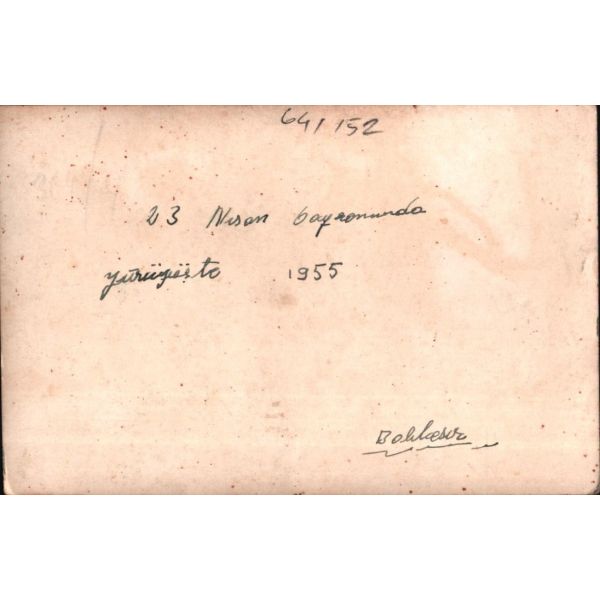 641/152
23 Nisan bayramında
yürüyüşte 1955
Balıkesir